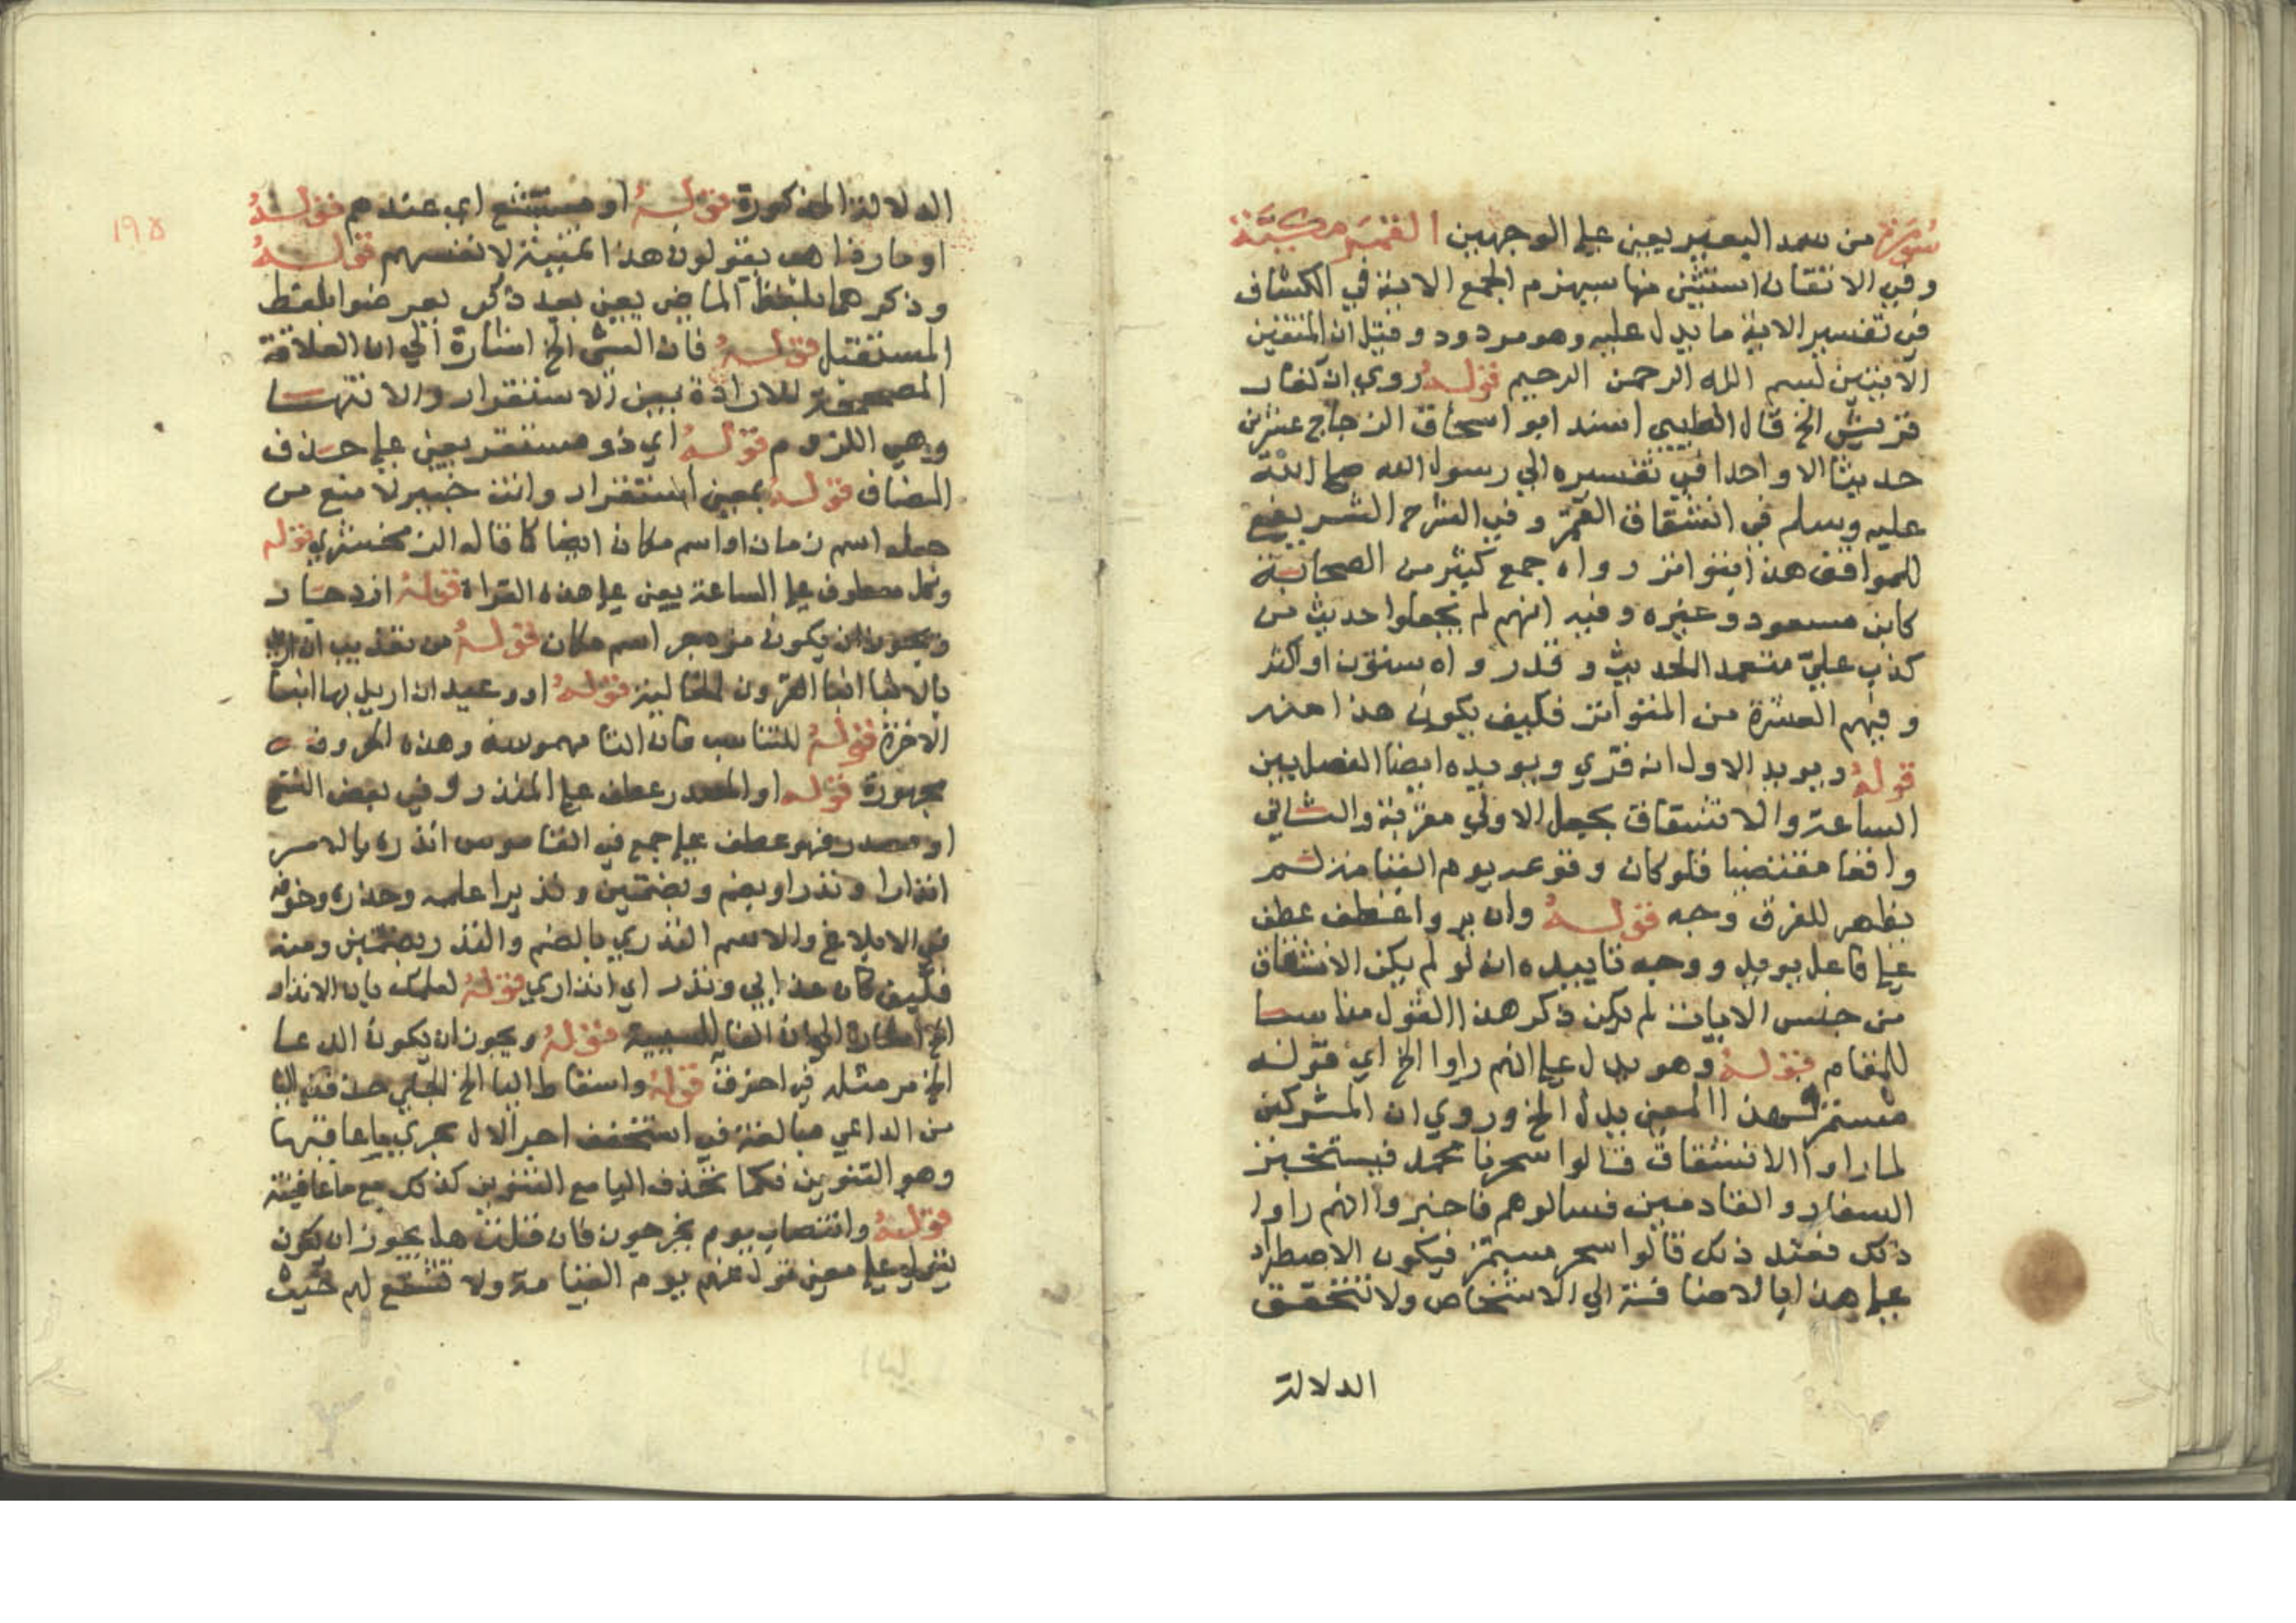 سورة من سمد البعير يعين علي الوجهين القمر مكية
وفي الاتقان استثني منها سيهزم الجمع الاية في الكشاف
في تفسير الاية ما يدل عليه وهو مردود وقيل ان المتقين
الايتين بسم الله الرحمن الرحيم قوله روي ان كفار
قريش الخ قال الطيبي اسند ابو اسحاق الزجاج عشرين
حديثا الا واحدا في تفسيره الي رسول الله صلي الله
عليه وسلم في انشقاق القمر وفي الشرح الشريفي
للمواقف هذا متواتر رواه جمع كثير من الصحابة
كابن مسعود وغيره وفيه انهم لم يجعلوا حديث من
كذب علي متعمدا الحديث وقد رواه ستون او اكثر
وفيهم العشرة من المتواتر فكيف يكون هذا منه
قوله ويويد الاول انه قري ويويده ايضا الفصل بين
الساعة والانشقاق بجعل الاولي مقربة والثاني
واقعا مقتضيا فلو كان وقوعه يوم القيامة لم
يظهر للفرق وجه قوله وان يروا عطف عطف
علي فاعل يويد ووجه تاييده انه لو لم يكن الانشقاق
من جنس الايات لم يكن ذكر هذا القول مناسبا
للمقام قوله وهو يدل علي انهم راوا الخ اي قوله
مستمر بهذا المعني يدل الخ وروي ان المشركين
لما راوا الانشقاق قالوا سحرنا محمد فيستخبر
السفار والقادمين فسالوهم فاخبروا انهم راوا
ذلك فعند ذلك قالوا سحر مستمر فيكون الاصطراد
علي هذا بالاضافة الي الاشخاص ولا تتحقق
الدلالة
الدلالة المذكورة قوله او مستبشع اي عندهم قوله
او مار ذاهب يقولون هذا تمنية لانفسهم قوله
وذكرهما بلفظ الماضي يعني بعد ذكر يعرضوا بلفظ
المستقبل قوله فان الشي الخ اشارة الي ان العلاقة
المصححة للارادة بين الاستقرار والانتها
وهي اللزوم قوله اي ذو مستقر يعني علي حذف
المضاف قوله بمعني استقرار وانت خبير لا منع من
جعله اسم زمان او اسم مكان ايضا كما قاله الزمخشري قوله
وكل معطوف علي الساعة يعني علي هذه القراة قوله ازدجار
ويجوز ان يكون مزدجر اسم مكان قوله من تعذيب ان اريد
بالانبا انبا القرون الخالية قوله او وعيد ان اريد بها انبا
الاخرة قوله للتناسب فان التا مهموسة وهذه الحروف
مجهورة قوله او المصدر عطف علي المنذر وفي بعض النسخ
او مصدر فهو عطف علي جمع في القاموس انذره بالامر
انذارا ونذرا ويضم وبضمتين ونذيرا اعلمه وحذره وخوفه
في الابلاغ والاسم النذري بالضم والنذر بضمتين ومنه
فكيف كان عذابي ونذر اي انذاري قوله لعلمك بان الانذار
الخ اشارة الي ان الفا للسببية قوله ويجوز ان يكون الدعا
الخ مر مثله في احرف قوله واسقاط اليا الخ الجلي حذفت اليا
من الداعي مبالغة في التخفيف اجرا لال مجري ما عاقبها
وهو التنوين فكما تحذف اليا مع التنوين كذلك مع ما عاقبته
قوله وانتصاب يوم يخرجون فان قلت هل يجوز ان يكون
بتول علي معني تول عنهم يوم القيامة ولا تشفع لهم حيث
١٩٥